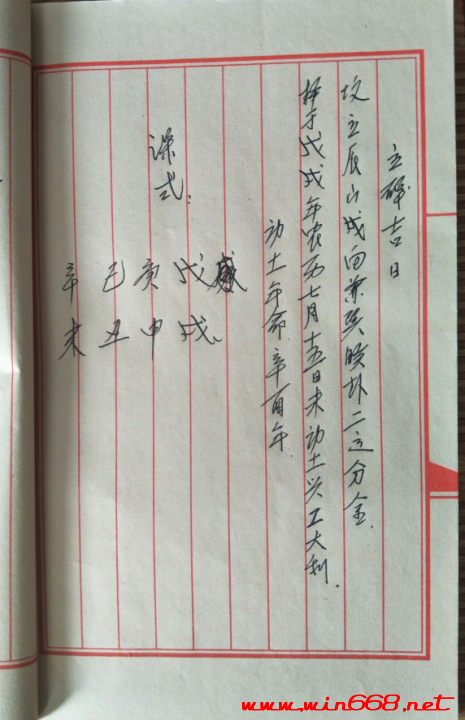 立碑吉日
坟立辰山戌向兼巽乾卦二运分金.
择于戊戌年农历七月十五日未动土兴工大利.
动土年命:辛酉年.
课式.
戊 庚 己 辛
戌 申 丑 未
www.win668.net